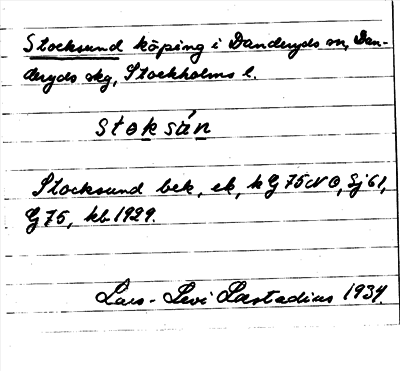 Stocksund köping i Danderyds sn, Dan-
deryds skg, Stockholms l.
stoksún
Stocksund bek, ek, k G 75 NO, Sj 61,
G 75, kb 1929.
Lars-Levi Læstadius 1934.